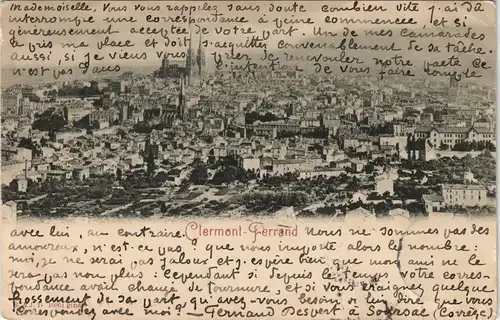 Mademoiselle, Vous vous rappelez sans doute combien vite j'ai dû
interrompre une correspondance à peine commencée et si
généreusement acceptée de votre part. Un de mes camarades
a pris ma place et doit s'acquitter convenablement de sa tâche.
Aussi, si je viens vous prier de renouveler notre pacte ce
n'est pas l'intention de vous faire rompre
Clermont-Ferrand
avec lui, au contraire. Nous ne sommes pas des
amoureux, n'est-ce pas? que nous importe alors le nombre:
moi, je ne serai pas jaloux et j'espère bien que mon ami ne le
sera pas non plus. Cependant si depuis le temps votre corres-
pondance avait changé de tournure, et si vous craigniez quelque
froissement de sa part, qu'avez-vous besoin de lui dire que vous
correspondez avec moi? — Fernand Desvert à Sornac (Corrèze)